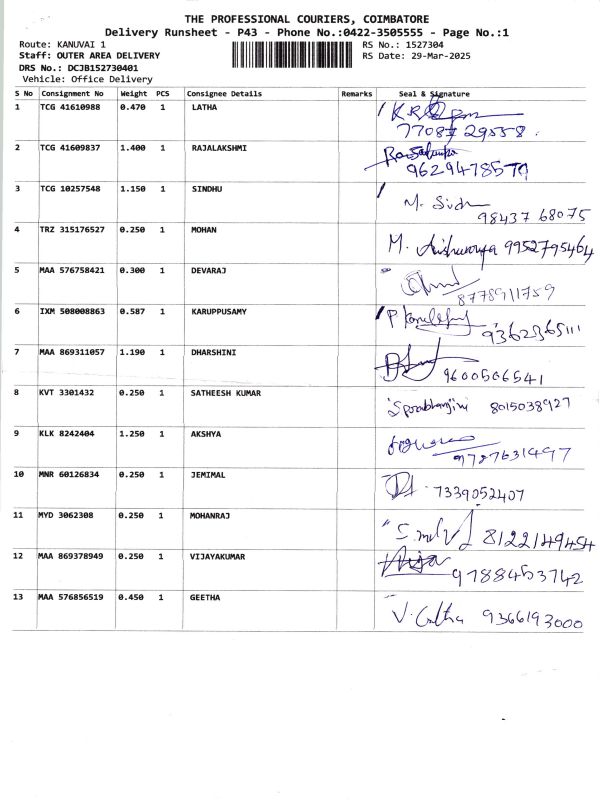 THE PROFESSIONAL COURIERS, COIMBATORE
Delivery Runsheet - P43 - Phone No.:0422-3505555 - Page No.:1
Route: KANUVAI 1 RS No.: 1527304
Staff: OUTER AREA DELIVERY RS Date: 29-Mar-2025
DRS No.: DCJB152730401
Vehicle: Office Delivery
S No Consignment No Weight PCS Consignee Details Remarks Seal & Signature
1 TCG 41610988 0.470 1 LATHA
2 TCG 41609837 1.400 1 RAJALAKSHMI
9629478579
3 TCG 10257548 1.150 1 SINDHU M. Sindhu
98437 68075
4 TRZ 315176527 0.250 1 MOHAN M. Aishwarya 9952795464
5 MAA 576758421 0.300 1 DEVARAJ
8778911759
6 IXM 508008863 0.587 1 KARUPPUSAMY
9362365111
7 MAA 869311057 1.190 1 DHARSHINI
9600506541
8 KVT 3301432 0.250 1 SATHEESH KUMAR 8015038927
9 KLK 8242404 1.250 1 AKSHYA
9787631497
10 MNR 60126834 0.250 1 JEMIMAL 7339052407
11 MYD 3062308 0.250 1 MOHANRAJ 8122149454
12 MAA 869378949 0.250 1 VIJAYAKUMAR
9788453742
13 MAA 576856519 0.450 1 GEETHA V. Geetha 9366193000